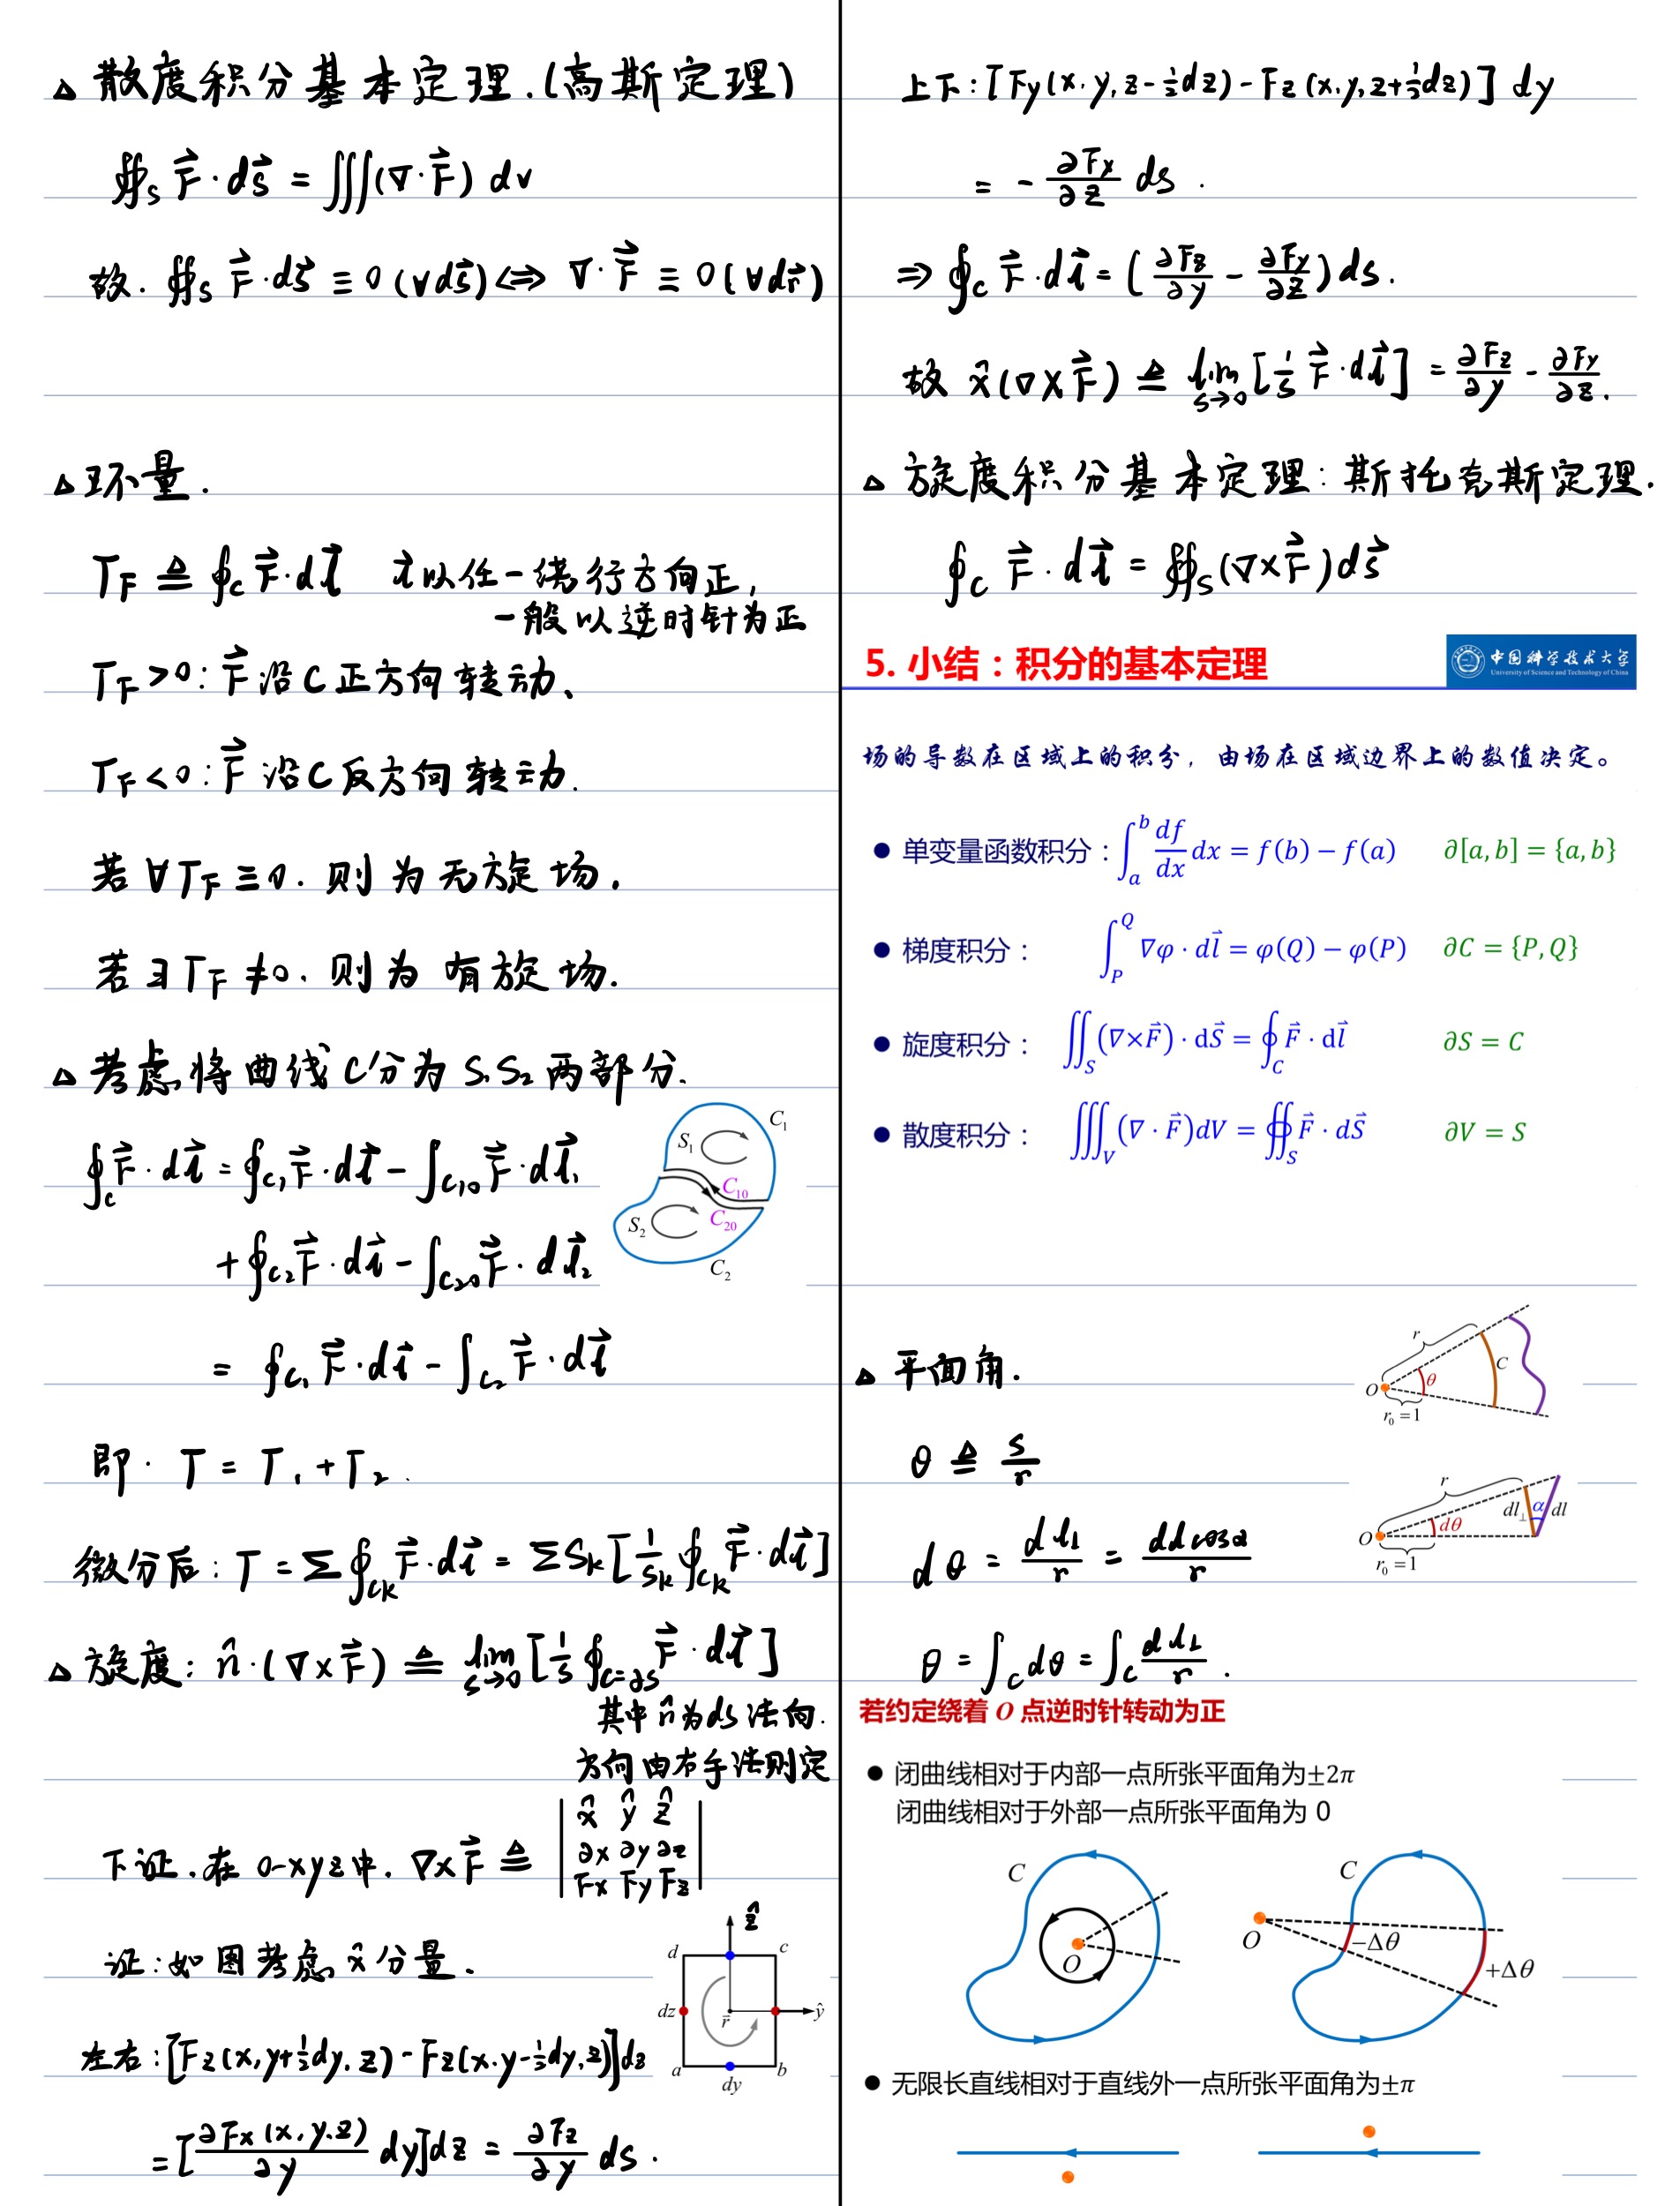 △ 散度积分基本定理.(高斯定理)
∯_S F⃗·ds⃗ = ∭(∇·F⃗) dv
故. ∯_S F⃗·ds⃗ ≡ 0 (∀ds⃗) ⟺ ∇·F⃗ ≡ 0 (∀dr⃗)
△ 环量.
T_F ≜ ∮_C F⃗·dl⃗ l⃗以任一绕行方向正,
一般以逆时针为正
T_F > 0: F⃗ 沿C正方向转动、
T_F < 0: F⃗ 沿C反方向转动.
若 ∀T_F ≡ 0. 则为无旋场.
若 ∃T_F ≠ 0. 则为有旋场.
△ 考虑将曲线C分为 S₁S₂ 两部分.
∮_C F⃗·dl⃗ = ∮_C₁ F⃗·dl⃗ - ∫_C₁₀ F⃗·dl⃗₁
+ ∮_C₂ F⃗·dl⃗ - ∫_C₂₀ F⃗·dl⃗₂
= ∮_C₁ F⃗·dl⃗ - ∫_C₂ F⃗·dl⃗
S₁ C₁
C₁₀
S₂ C₂₀
C₂
即· T = T₁ + T₂.
微分后: T = Σ∮_CK F⃗·dl⃗ = ΣS_k[1/S_k ∮_CK F⃗·dl⃗]
△ 旋度: n̂·(∇×F⃗) ≜ lim_{S→0} [1/S ∮_{C=∂S} F⃗·dl⃗]
其中n̂为ds法向.
方向由右手法则定
下证.在 0-xyz中. ∇×F⃗ ≜ | x̂ ŷ ẑ |
| ∂x ∂y ∂z |
| Fx Fy Fz |
证:如图考虑 x̂ 分量.
左右:[Fz(x,y+½dy,z) - Fz(x.y-½dy,z)]dz
= [∂Fx(x,y.z)/∂y dy]dz = ∂Fz/∂y ds.
ẑ
d c
dz r⃗ ŷ
a b
dy
上下:[Fy(x.y,z-½dz) - Fz(x.y,z+½dz)] dy
= - ∂Fx/∂z ds.
⇒ ∮_C F⃗·dl⃗ = (∂Fz/∂y - ∂Fy/∂z) ds.
故 x̂(∇×F⃗) ≜ lim_{S→0} [1/S F⃗·dl⃗] = ∂Fz/∂y - ∂Fy/∂z.
△ 旋度积分基本定理:斯托克斯定理.
∮_C F⃗·dl⃗ = ∯_S (∇×F⃗)ds⃗
5. 小结：积分的基本定理
中国科学技术大学
University of Science and Technology of China
场的导数在区域上的积分，由场在区域边界上的数值决定。
● 单变量函数积分：∫_a^b df/dx dx = f(b) − f(a) ∂[a, b] = {a, b}
● 梯度积分： ∫_P^Q ∇φ · dl⃗ = φ(Q) − φ(P) ∂C = {P, Q}
● 旋度积分： ∬_S (∇×F⃗) · dS⃗ = ∮_C F⃗ · dl⃗ ∂S = C
● 散度积分： ∭_V (∇ · F⃗)dV = ∯_S F⃗ · dS⃗ ∂V = S
△ 平面角.
r
C
O θ
r₀ = 1
θ ≜ s/r
dθ = dl⊥/r = dl cosα/r
r
dl⊥ α dl
O dθ
r₀ = 1
θ = ∫_C dθ = ∫_C dl⊥/r.
若约定绕着 O 点逆时针转动为正
● 闭曲线相对于内部一点所张平面角为±2π
闭曲线相对于外部一点所张平面角为 0
C
O
C
O
−Δθ
+Δθ
● 无限长直线相对于直线外一点所张平面角为±π